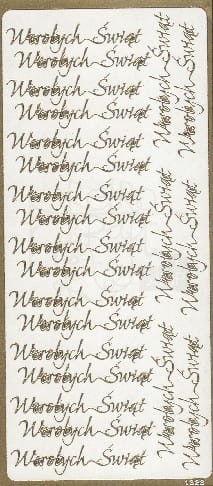 Wesołych Świąt
Wesołych Świąt
Wesołych Świąt
Wesołych Świąt
Wesołych Świąt
Wesołych Świąt
Wesołych Świąt
Wesołych Świąt
Wesołych Świąt
Wesołych Świąt
Wesołych Świąt
Wesołych Świąt
Wesołych Świąt
Wesołych Świąt
Wesołych Świąt
Wesołych Świąt
Wesołych Świąt
Wesołych Świąt
Wesołych Świąt
Wesołych Świąt
Wesołych Świąt
Wesołych Świąt
Wesołych Świąt